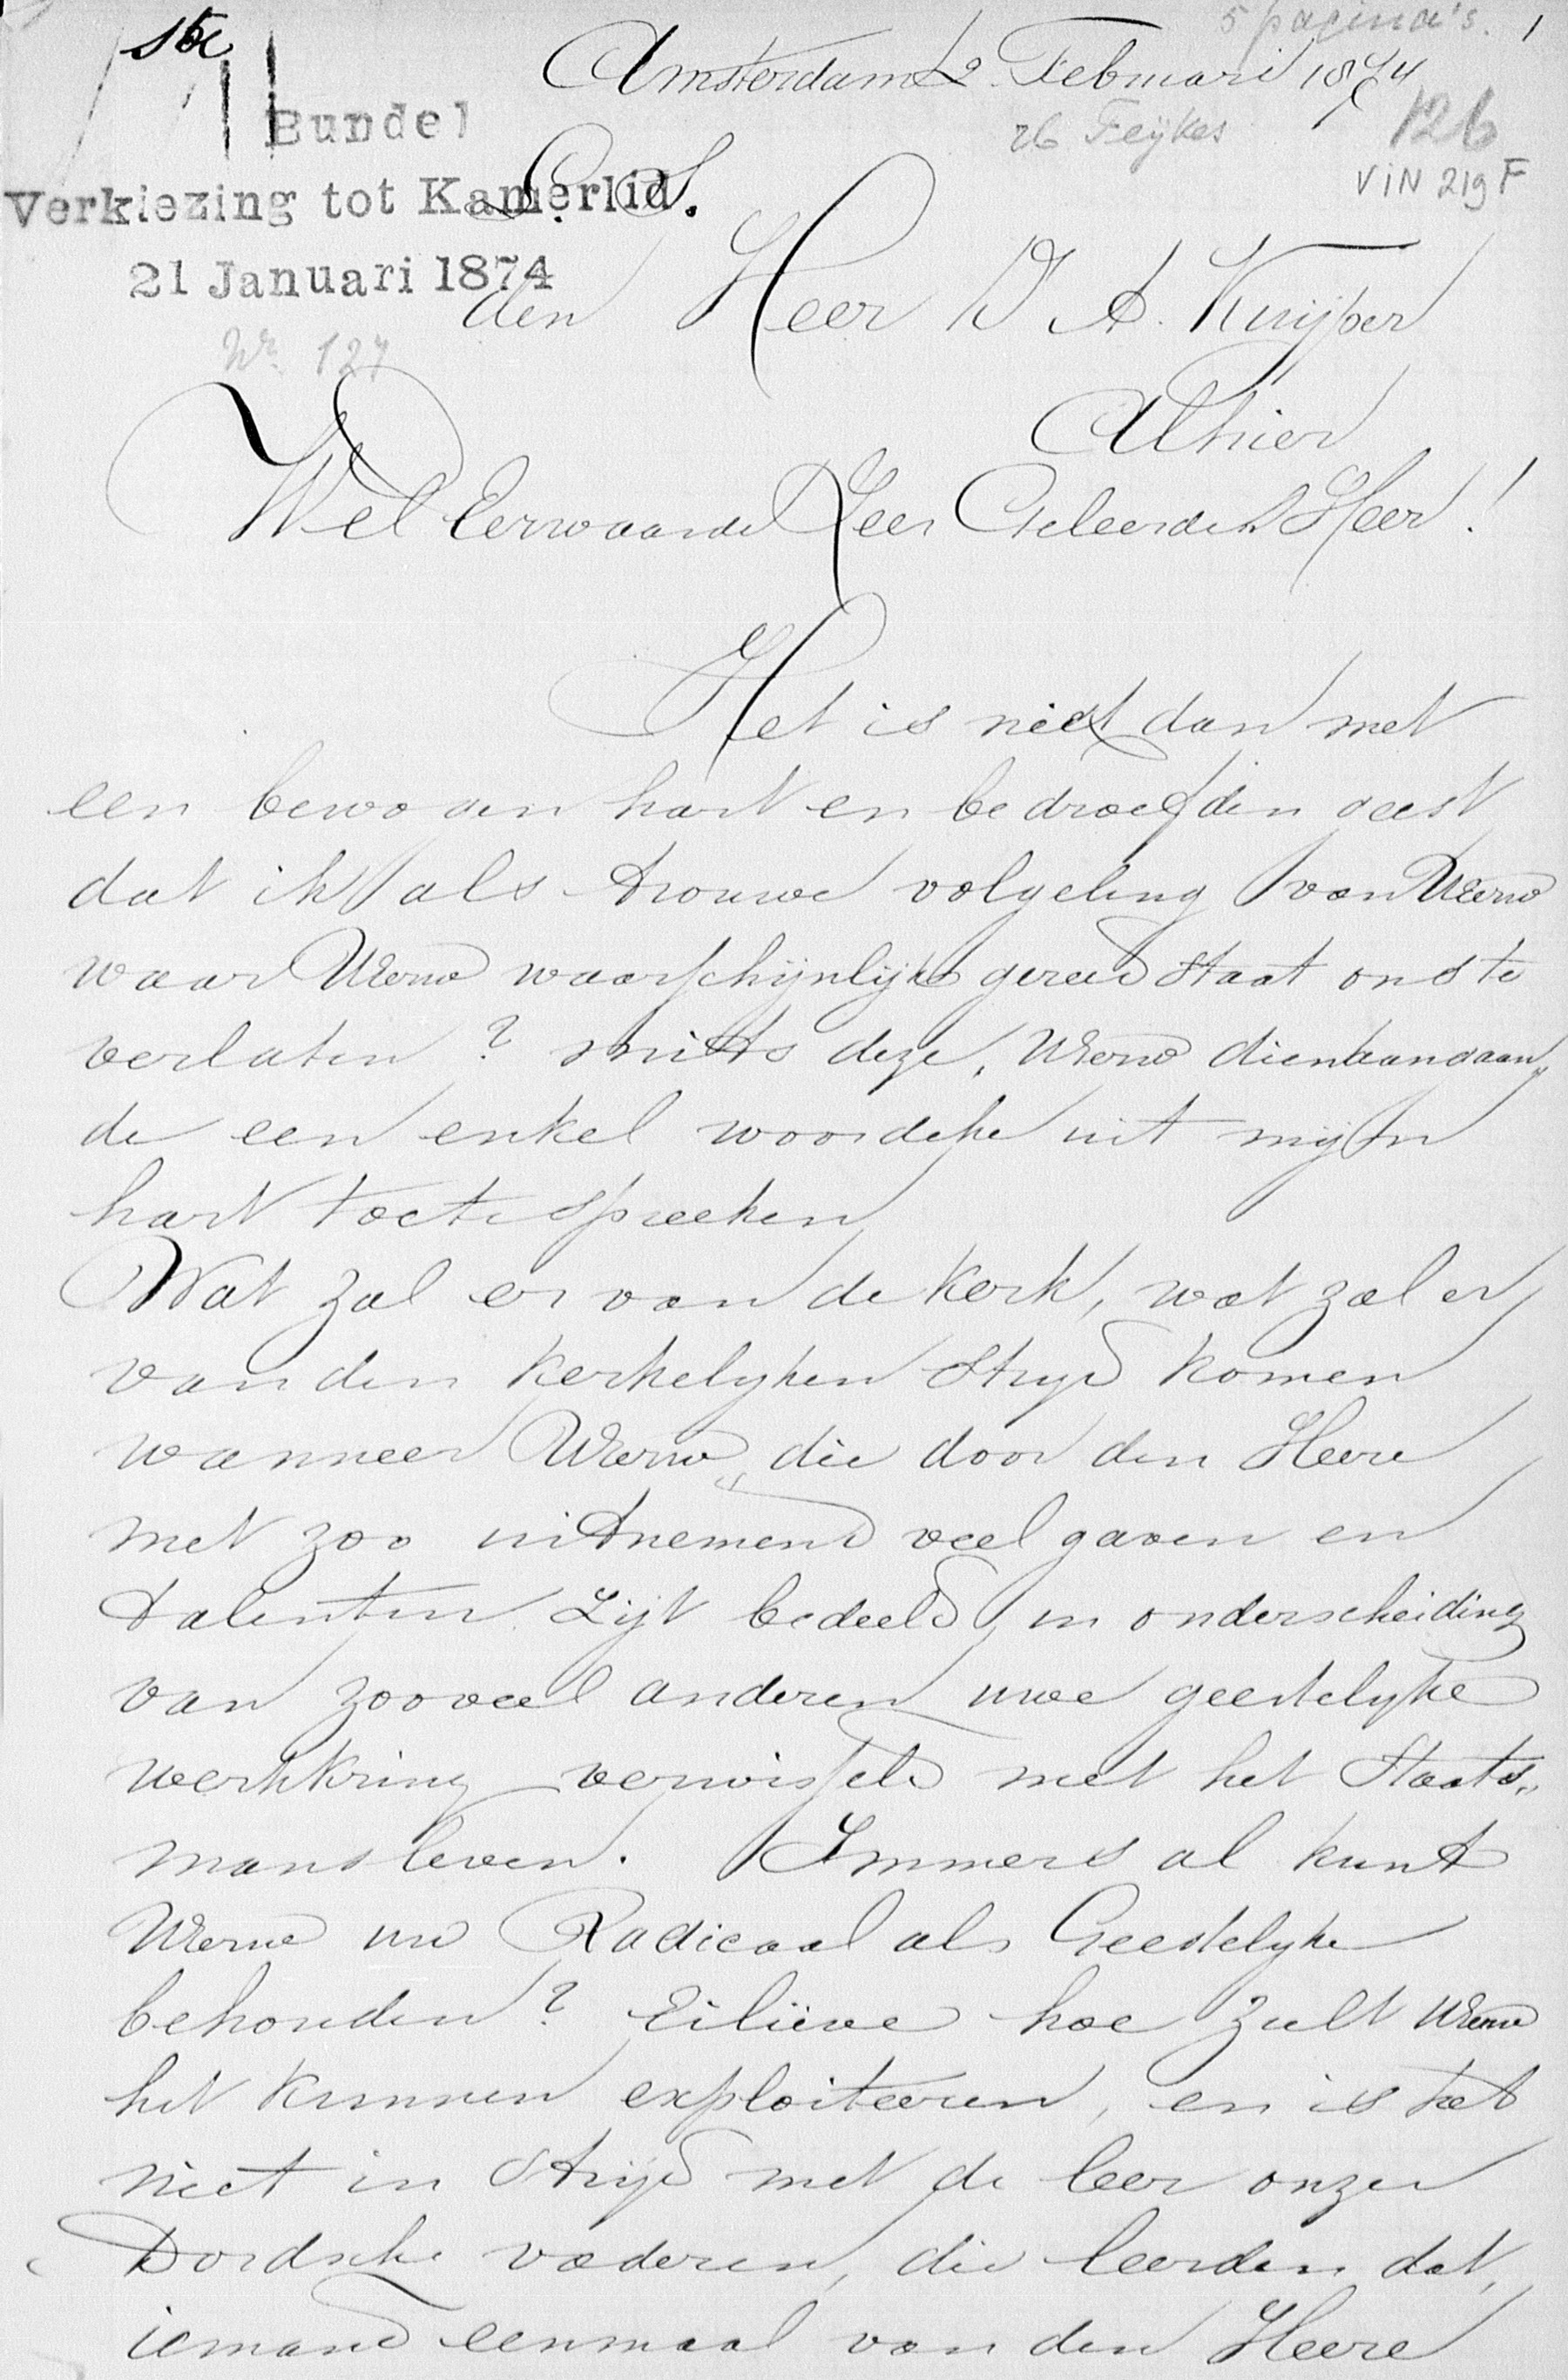 5 pagina's. 1
Amsterdam 2 Februari 1874
Bundel
26 Feijkes
126
Verkiezing tot Kamerlid.
VIN 219 F
21 Januari 1874
den Heer D A. Kuijper
Nr. 127
Alhier
Wel Eerwaarde Zeer Geleerden Heer!
Het is niet dan met
een bewogen hart en bedroefden geest
dat ik als trouwe volgeling van UEerw
waar UEerw waarschijnlijk gereed staat ons te
verlaten? mitts deze, UEerw dienaangaan„
de een enkel woordeke uit mijn
hart toe te spreeken
Wat zal er van de Kerk, wat zal er
van den Kerkelyken Stryd komen
wanneer UEerw„ die door den Heere
met zoo uitnemend veel gaven en
talenten Zijt bedeeld, in onderscheiding
van zooveel anderen uwe geestelyke
werkkring verwisseld met het Staats„
mansleven. Immers al kunt
UEerw uw Radicaal als Geestelyke
behouden? Eilieve hoe Zult UEerw
het kunnen exploiteeren, en is het
niet in Strijd met de leer onzer
Dordsche vaderen, die leerden dat,
iemand eenmaal van den Heere